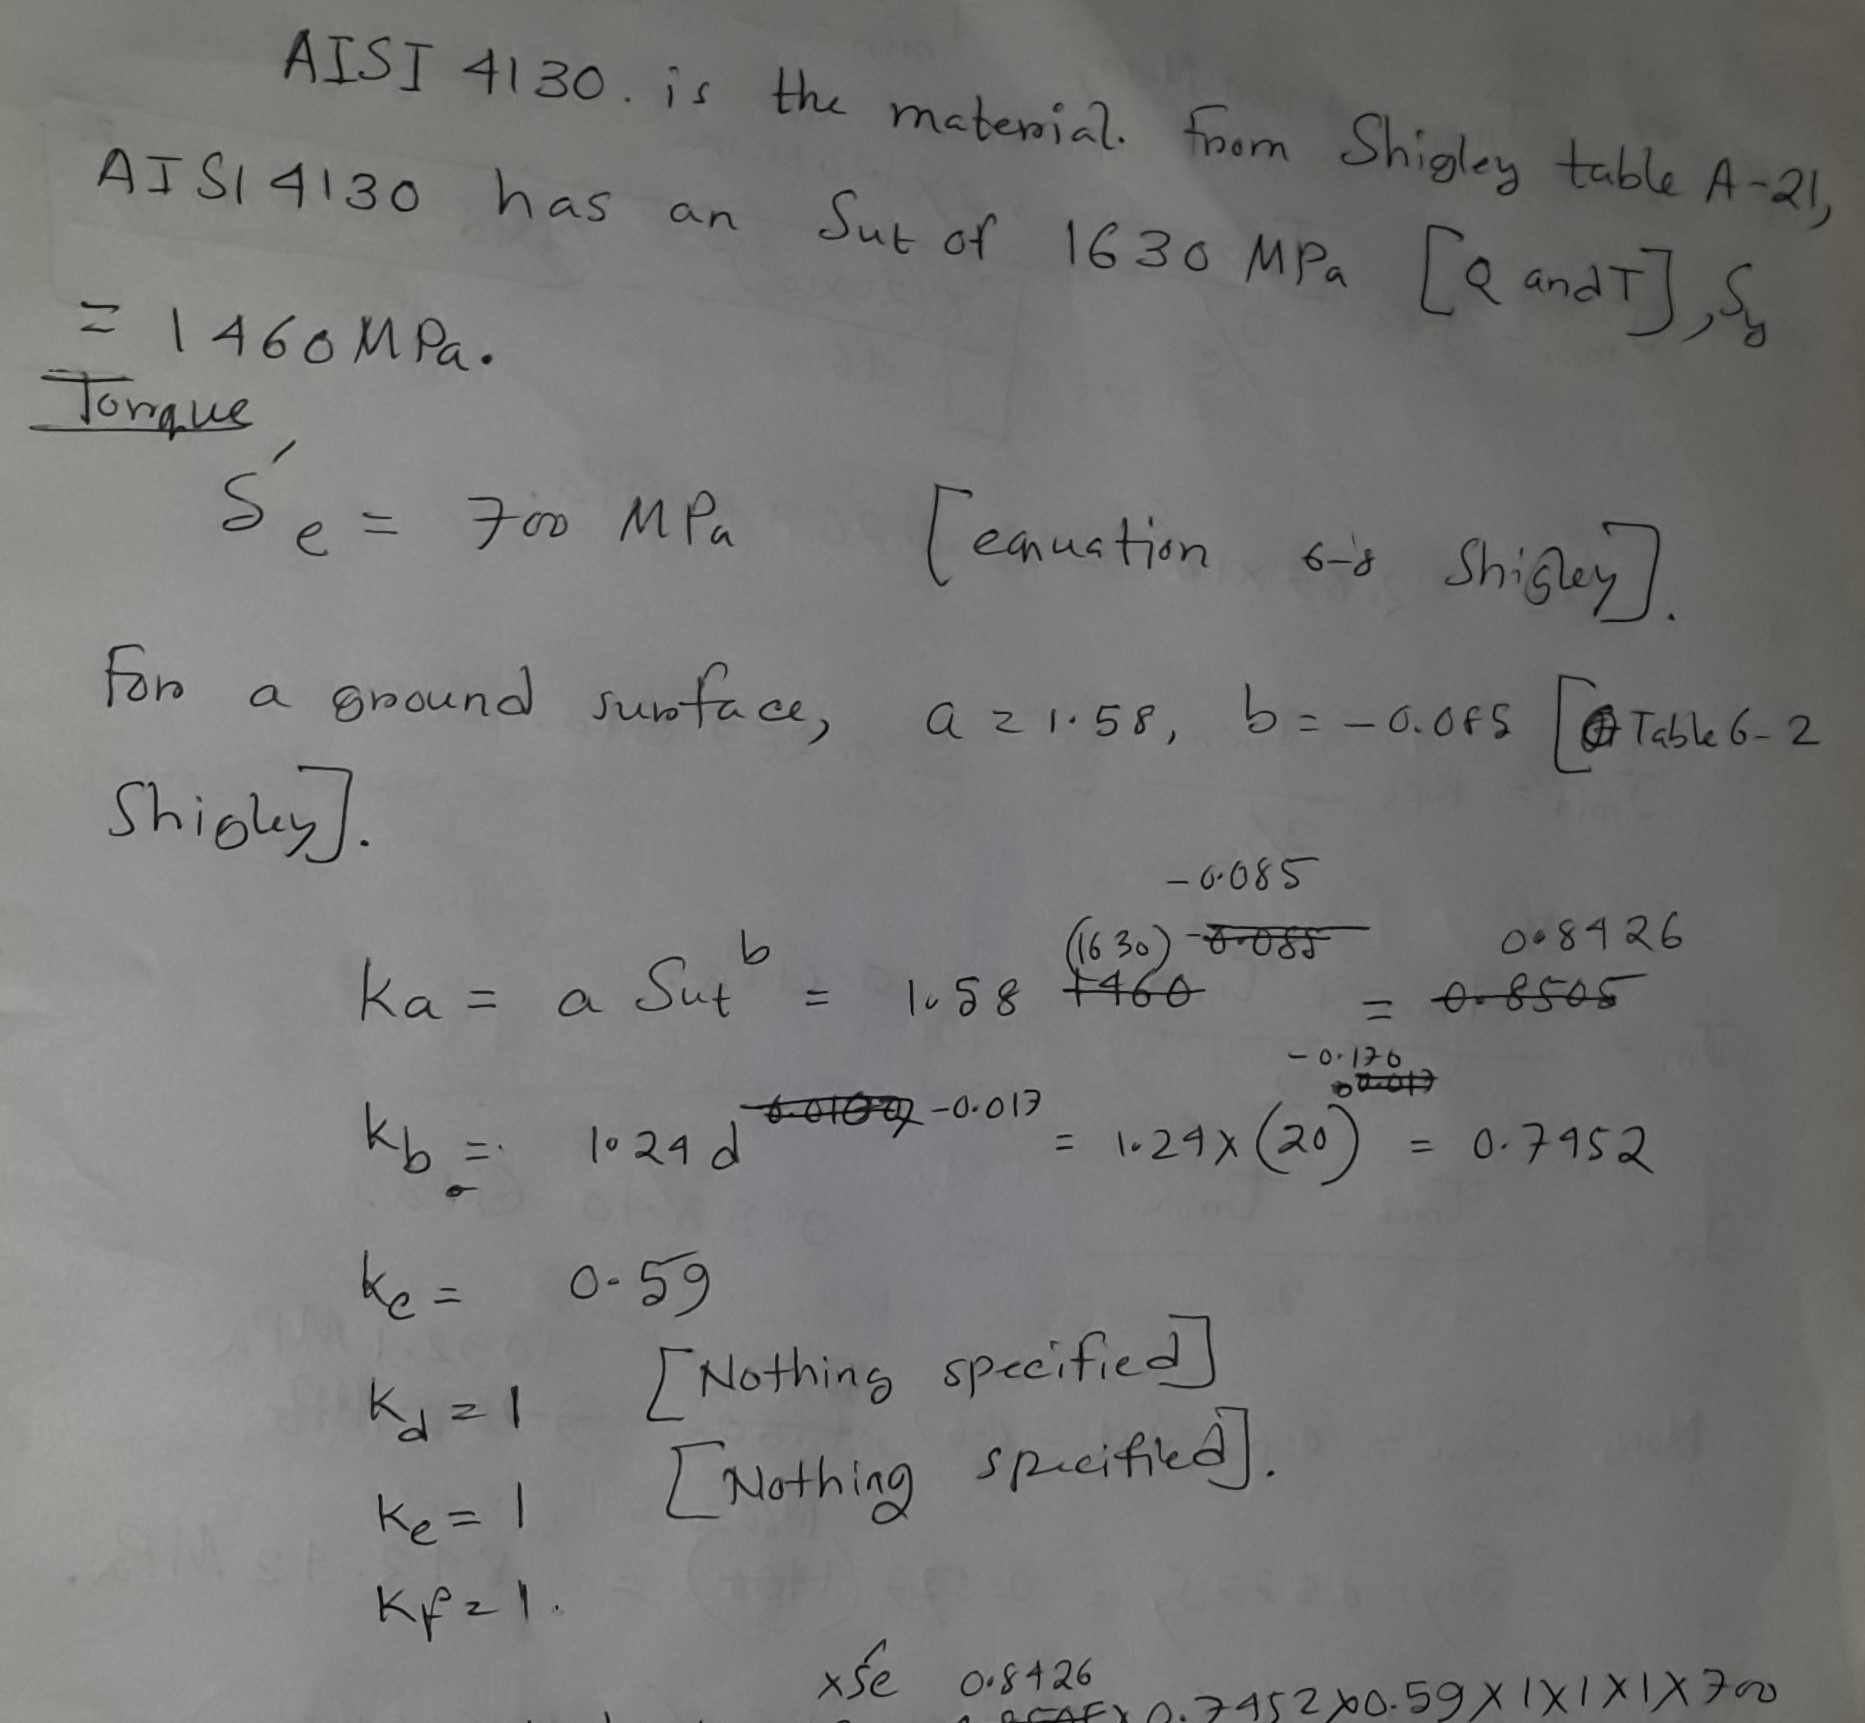 AISI 4130. is the material. From Shigley table A-21,
AISI 4130 has an Sut of 1630 MPa [Q and T], Sy
= 1460 MPa.
Torque
S'e = 700 MPa [equation 6-8 Shigley].
For a ground surface, a = 1.58, b = -0.085 [Table 6-2
Shigley].
ka = a Sut^b = 1.58 (1630)^-0.085 = 0.8426
kb = 1.24 d^-0.017 = 1.24 x (20)^-0.170 = 0.7452
kc = 0.59
kd = 1 [Nothing specified]
ke = 1 [Nothing specified].
kf = 1.
xS'e 0.8426
x 0.7452 x 0.59 x 1 x 1 x 1 x 700